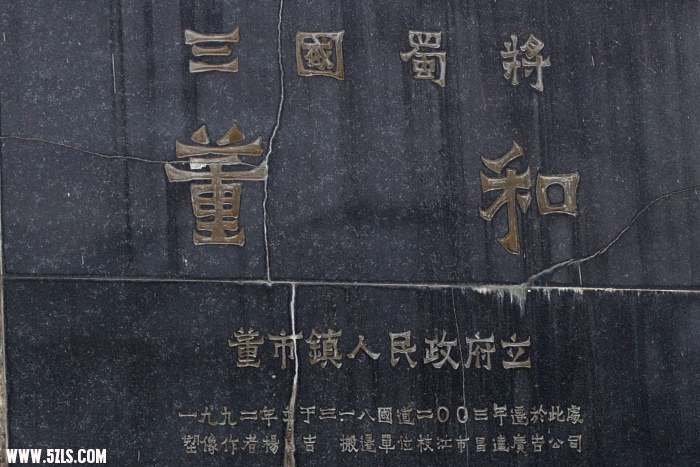 三國蜀將
董和
董市鎮人民政府立
一九九二年立于三一八國道二00三年遷於此處
塑像作者楊 吉 搬遷單位枝江市昌達廣告公司
WWW.5ZLS.COM